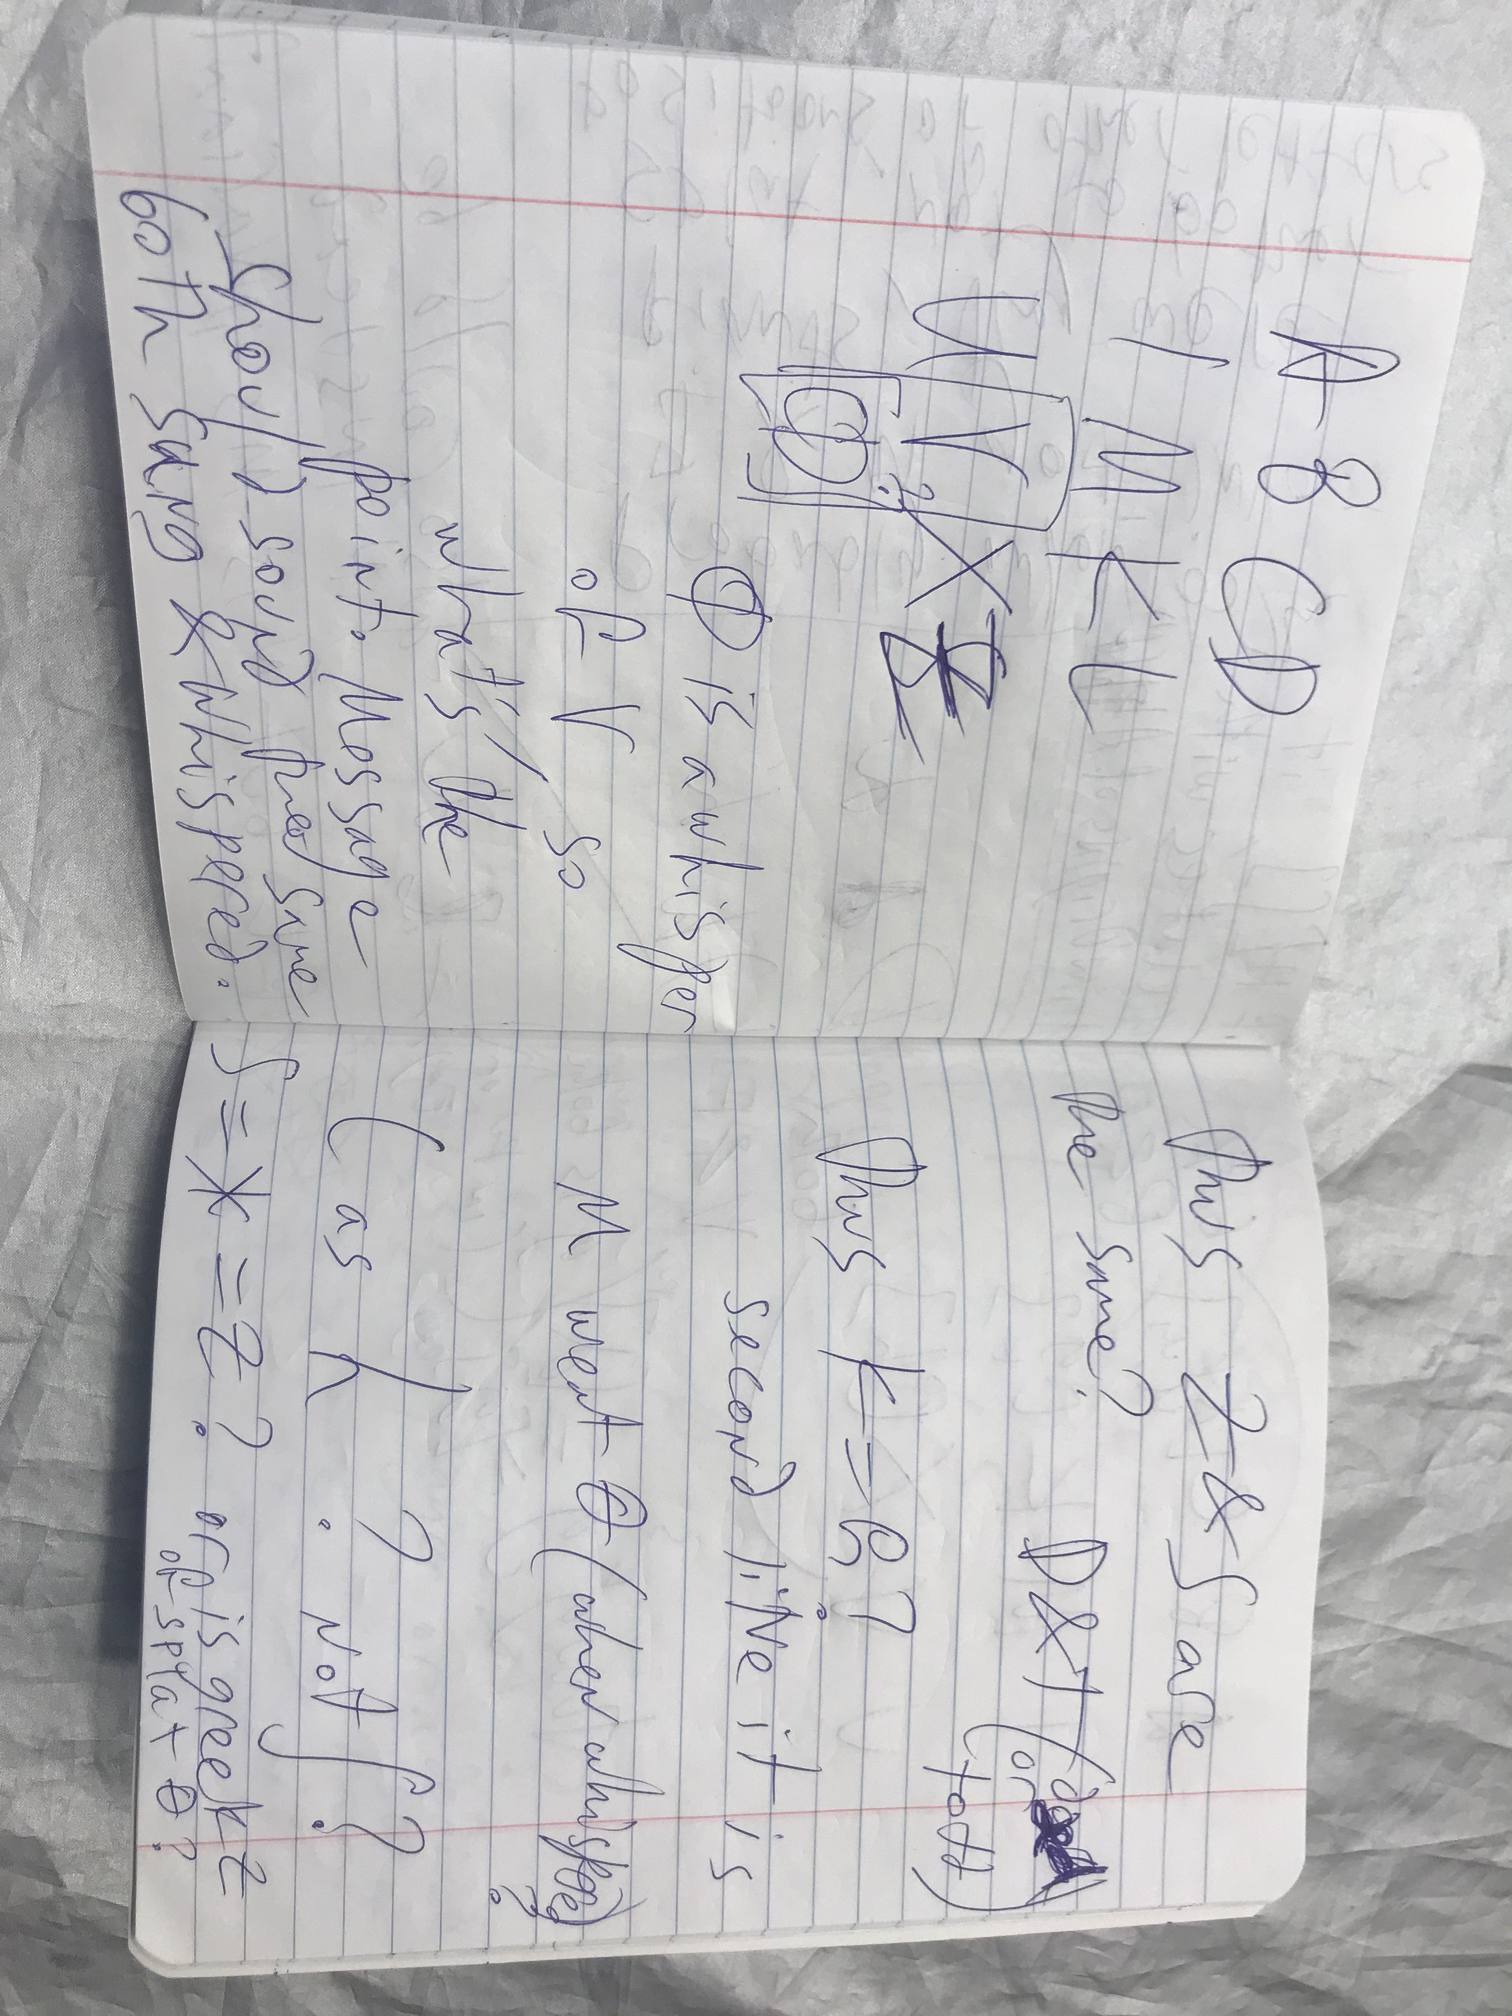 A B C D
I M K L
U V X Z
Φ
Φ is a whisper
of V so
what's the
point. Message
should sound the same
both sung & whispered.
Thus Z & S are
the same?
D & T (
or
totd)
Thus K = G?
second liNe it is
M went θ (when whispered)
?
( as h ? Not S?
S = * = Z? or is greek z
or splat θ?